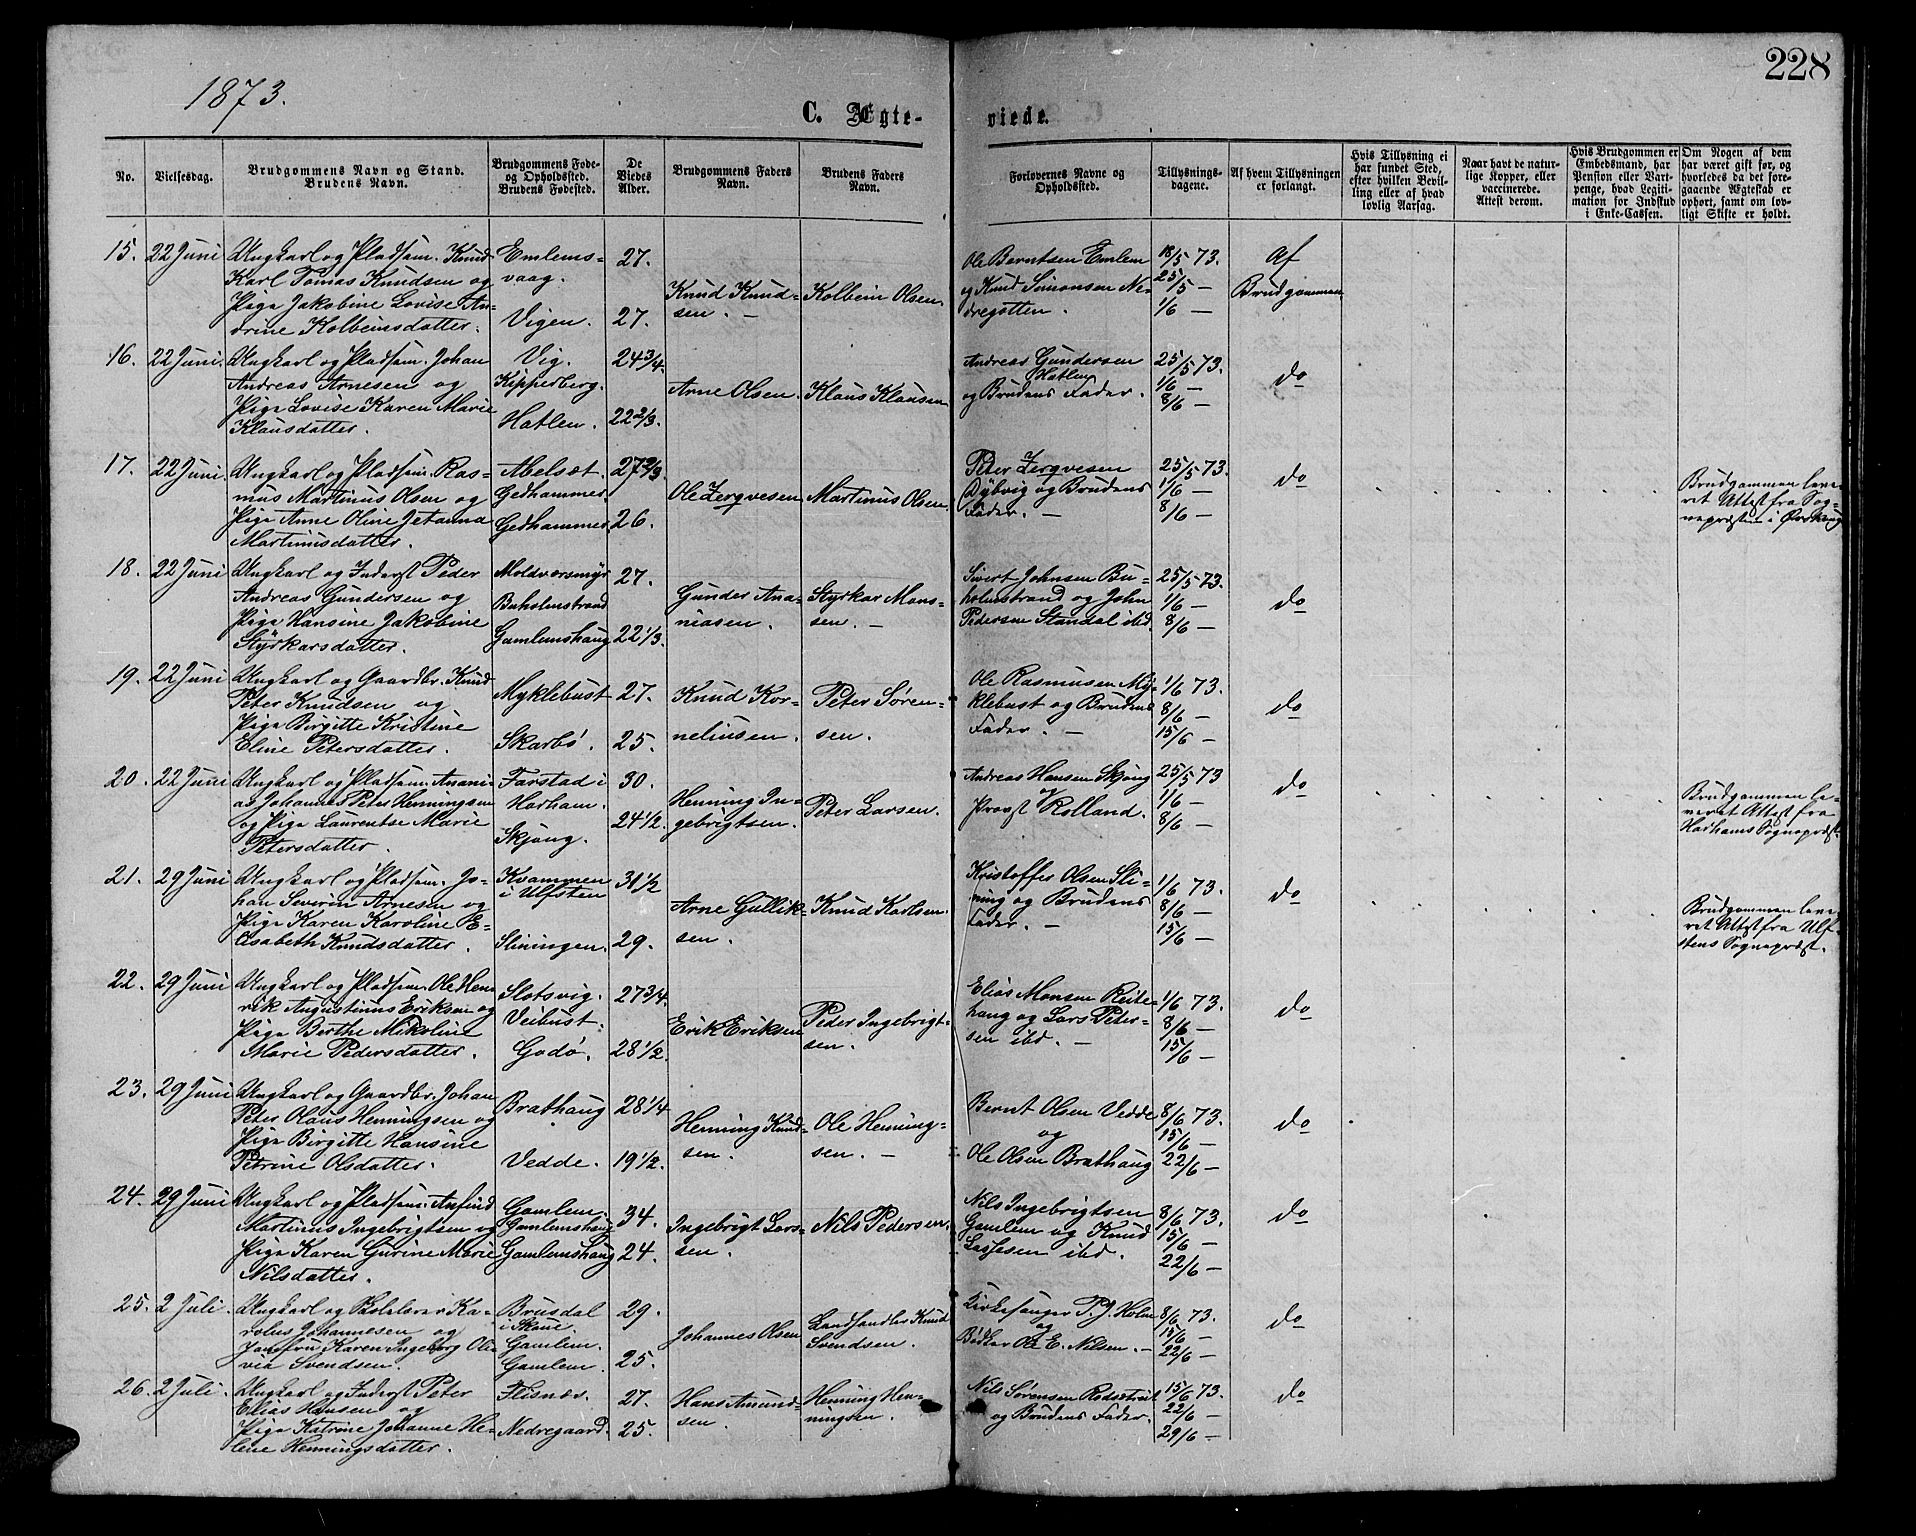 228
1873.
C. Ægte-
viede.
No.
Vielsesdag.
Brudgommens Navn og Stand.
Brudens Navn.
Brudgommens Føde-
og Opholdssted.
Brudens Fødested.
De
Viedes
Alder.
Brudgommens Faders
Navn.
Brudens Faders
Navn.
Forlovernes Navne og
Opholdssted.
Tillysnings-
dagene.
Af hvem Tillysningen
er forlangt.
Hvis Tillysning ei
har fundet Sted,
efter hvilken Bevil-
ling eller af hvad
lovlig Aarsag.
Naar havt de natur-
lige Kopper, eller
vaccinerede.
Attest derom.
Hvis Brudgommen er
Embedsmand, har
Pension eller Vart-
penge, hvad Legiti-
mation for Indskud
i Enke-Cassen.
Om Nogen af dem
har været gift før, og
hvorledes da det fore-
gaaende Ægteskab er
ophørt, samt om lov-
ligt Skifte er holdt.
15.
22 Juni
Ungkarl og Pladsem. Knud
Karl Tomas Knudsen og
Pige Jakobine Lovise An-
drine Kolbeinsdatter.
Emlems-
vaag.
Vigen.
27.
27.
Knud Knud-
sen. —
Kolbein Olsen.
Ole Berntsen Emlem
og Knud Simonsen Ne-
dregotten.
18/5 73.
25/5 —
1/6 —
Af
Brudgommen
16.
22 Juni.
Ungkarl og Pladsem. Johan
Andreas Arnesen og
Pige Lovise Karen Marie
Klausdatter.
Vig.
Kipperberg.
Hatlen.
24 3/4.
22 2/3.
Arne Olsen.
Klaus Klausen
Andreas Gundersen
Hatlen
og Brudens Fader.
25/5 73.
1/6 —
8/6 —
do
17.
22 Juni
Ungkarl og Pladsem. Ras-
mus Martinus Olsen og
Pige Anne Oline Jetanna
Martinusdatter.
Abelsæt.
Gedhammer.
Gedhammer
27 2/3.
26.
Ole Zergvesen
Martinus Olsen.
Peter Zergvesen
Dybvig og Brudens
Fader. —
25/5 73.
1/6 —
8/6 —
do
Brudgommen leve-
ret Attest fra Sog-
nepræsten i Ørskoug
18.
22 Juni
Ungkarl og Inderst Peder
Andreas Gundersen og
Pige Hansine Jakobine
Styrkarsdatter.
Moldværsmyr
Buholmstrand
Gamlemshaug
27.
22 1/3.
Gunder Ana-
niasen.
Styrkar Mons-
sen. —
Sivert Johnsen Bu-
holmstrand og John
Pedersen Standal ibd.
25/5 73.
1/6 —
8/6 —
do
19.
22 Juni
Ungkarl og Gaardbr. Knud
Peter Knudsen og
Pige Birgitte Kristine
Eline Petersdatter.
Myklebust
Skarbø.
27.
25.
Knud Kor-
neliusen.
Peter Søren-
sen.
Ole Rasmusen My-
klebust og Brudens
Fader. —
1/6 73.
8/6 —
15/6 —
do
20.
22 Juni
Ungkarl og Pladsem. Anani-
as Johannes Peter Henningsen
og Pige Laurentse Marie
Petersdatter.
Farstad i
Harham.
Skjong.
30.
24 1/2.
Henning In-
gebrigtsen.
Peter Larsen.
Andreas Hansen Skjong
og
Provst Rolland.
25/5 73
1/6 —
8/6 —
do
Brudgommen le-
veret Attest fra
Harhams Sognepræst.
21.
29 Juni
Ungkarl og Pladsem. Jo-
han Severin Arnesen og
Pige Karen Karoline E-
lisabeth Knudsdatter.
Kvammen
i Ulfsten
Sliningen.
31 1/2
29.
Arne Gullik-
sen.
Knud Karlsen.
Kristoffer Olsen Sli-
ning og Brudens
Fader. —
1/6 73.
8/6 —
15/6 —
do
Brudgommen leve-
ret Attest fra Ulf-
stens Sognepræst.
22.
29 Juni
Ungkarl og Pladsem. Ole Hen-
rik Augustinus Eriksen og
Pige Berthe Mikoline
Marie Pedersdatter.
Slotsvig.
Veibust.
Godø.
27 3/4.
28 1/2.
Erik Eriksen
Peder Ingebrigt-
sen.
Elias Monsen Reite-
haug og Lars Peter-
sen ibd. —
1/6 73.
8/6 —
15/6 —
do
23.
29 Juni
Ungkarl og Gaardbr. Johan
Peter Olaus Henningsen og
Pige Birgitte Hansine
Petrine Olsdatter.
Brathaug
Vedde.
28 1/4
19 1/2.
Henning Knud-
sen.
Ole Henning-
sen. —
Bernt Olsen Vedde
og
Ole Olsen Brathaug
8/6 73.
15/6 —
22/6 —
do
24.
29 Juni
Ungkarl og Pladsem. Anfind
Martinus Ingebrigtsen og
Pige Karen Gurine Marie
Nilsdatter.
Gamlem.
Gamlemshaug
Gamlemshaug
34.
24.
Ingebrigt Lars-
sen.
Nils Pedersen.
Nils Ingebrigtsen
Gamlem og Knud
Lassesen ibd.
8/6 73.
15/6 —
22/6 —
do
25.
2 Juli.
Ungkarl og Skolelærer Ka-
rolus Johannesen og
Jomfru Karen Ingeborg Oli-
via Svendsen.
Brusdal
i Skoue
Gamlem.
Gamlem.
29.
25.
Johannes Olsen
Landhandler Knud
Svendsen.
Kirkesanger P. J. Holm
og
Bødker Ole E. Nilsen. —
8/6 73.
15/6 —
22/6 —
do
26.
2 Juli.
Ungkarl og Inderst Peter
Elias Hansen og
Pige Katrine Johanne He-
lene Henningsdatter.
Flisnæs.
Nedregaard.
27.
25.
Hans Amund-
sen.
Henning Hen-
ningsen.
Nils Sørensen Rødsætreit
og Brudens Fader.
15/6 73.
22/6 —
29/6 —
do